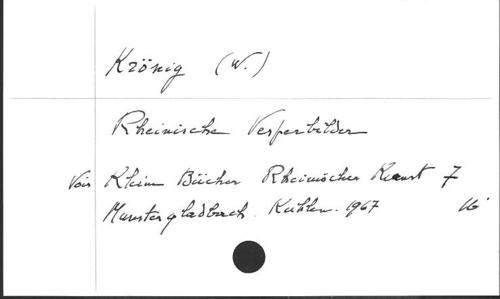 Krönig (W.)
Rheinische Vesperbilder
Voir Klein Bücher Rheinischer Kunst 7
Munstergladbach. Kühlen. 1967